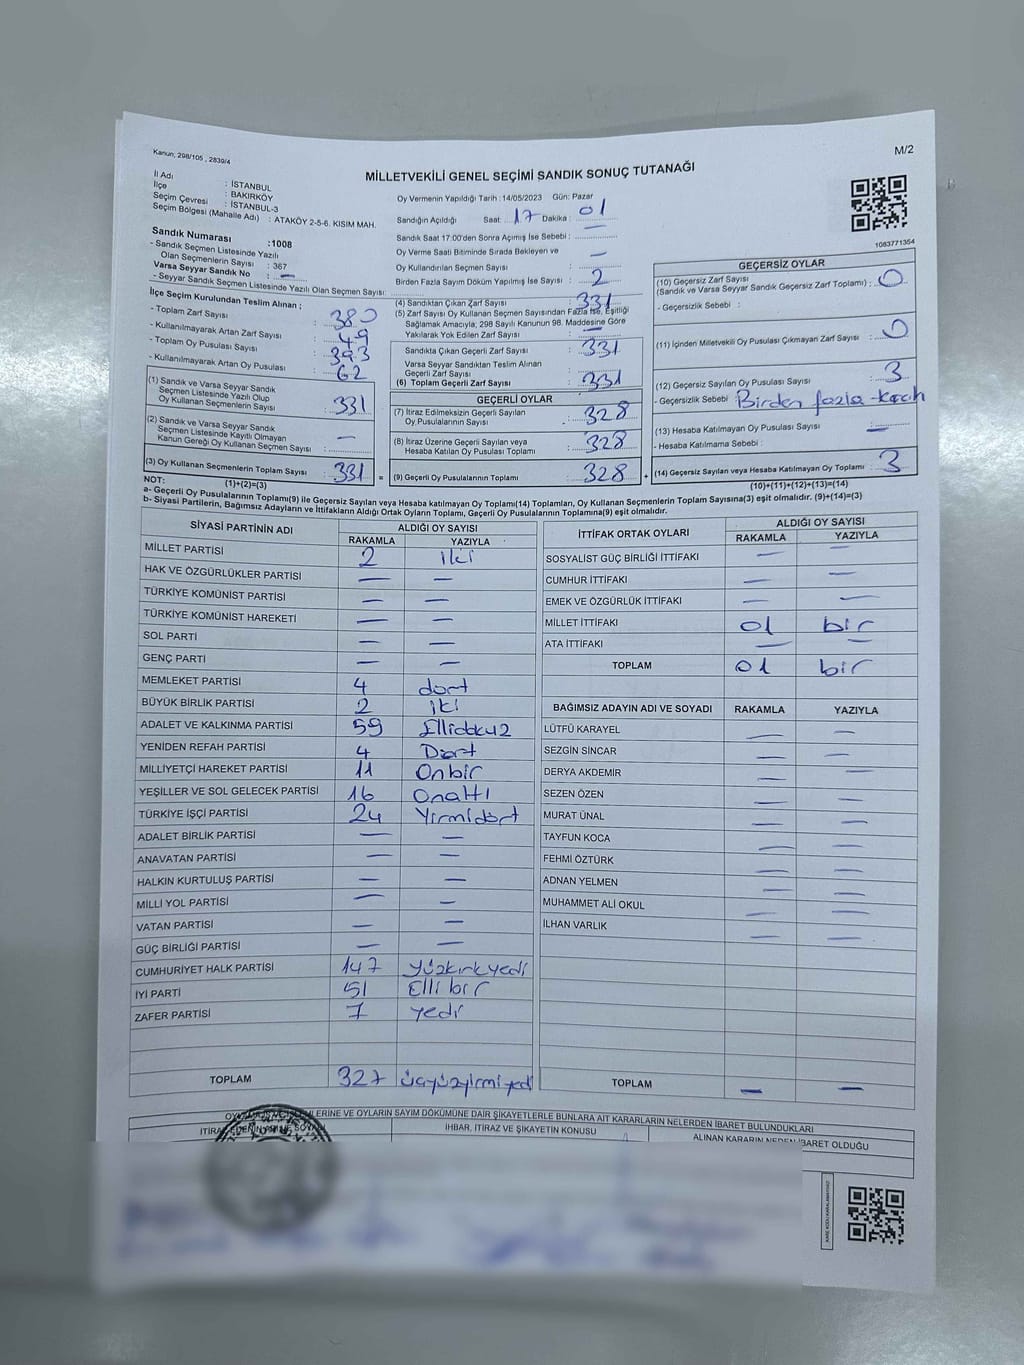 Kanun, 298/105 , 2839/4
M/2
MİLLETVEKİLİ GENEL SEÇİMİ SANDIK SONUÇ TUTANAĞI
İl Adı : İSTANBUL
İlçe : BAKIRKÖY
Seçim Çevresi : İSTANBUL-3
Seçim Bölgesi (Mahalle Adı) : ATAKÖY 2-5-6. KISIM MAH.
Oy Vermenin Yapıldığı Tarih : 14/05/2023 Gün: Pazar
Sandığın Açıldığı Saat: 17 Dakika : 01
Sandık Saat 17:00'den Sonra Açımış İse Sebebi :
Oy Verme Saati Bitiminde Sırada Bekleyen ve
Oy Kullandırılan Seçmen Sayısı : —
Birden Fazla Sayım Döküm Yapılmış İse Sayısı : 2
1083771354
Sandık Numarası :1008
- Sandık Seçmen Listesinde Yazılı
Olan Seçmenlerin Sayısı : 367
Varsa Seyyar Sandık No : —
- Seyyar Sandık Seçmen Listesinde Yazılı Olan Seçmen Sayısı:
İlçe Seçim Kurulundan Teslim Alınan ;
- Toplam Zarf Sayısı : 380
- Kullanılmayarak Artan Zarf Sayısı : 49
- Toplam Oy Pusulası Sayısı : 393
- Kullanılmayarak Artan Oy Pusulası : 62
(1) Sandık ve Varsa Seyyar Sandık
Seçmen Listesinde Yazılı Olup
Oy Kullanan Seçmenlerin Sayısı : 331
(2) Sandık ve Varsa Seyyar Sandık
Seçmen Listesinde Kayıtlı Olmayan
Kanun Gereği Oy Kullanan Seçmen Sayısı : —
(3) Oy Kullanan Seçmenlerin Toplam Sayısı : 331
(1)+(2)=(3)
(4) Sandıktan Çıkan Zarf Sayısı : 331
(5) Zarf Sayısı Oy Kullanan Seçmen Sayısından Fazla İse, Eşitliği
Sağlamak Amacıyla, 298 Sayılı Kanunun 98. Maddesine Göre
Yakılarak Yok Edilen Zarf Sayısı : —
Sandıkta Çıkan Geçerli Zarf Sayısı : 331
Varsa Seyyar Sandıktan Teslim Alınan
Geçerli Zarf Sayısı
(6) Toplam Geçerli Zarf Sayısı : 331
GEÇERLİ OYLAR
(7) İtiraz Edilmeksizin Geçerli Sayılan
Oy Pusulalarının Sayısı : 328
(8) İtiraz Üzerine Geçerli Sayılan veya
Hesaba Katılan Oy Pusulası Toplamı : 328
= (9) Geçerli Oy Pusulalarının Toplamı : 328 +
GEÇERSİZ OYLAR
(10) Geçersiz Zarf Sayısı
(Sandık ve Varsa Seyyar Sandık Geçersiz Zarf Toplamı) : 0
- Geçersizlik Sebebi :
(11) İçinden Milletvekili Oy Pusulası Çıkmayan Zarf Sayısı : 0
(12) Geçersiz Sayılan Oy Pusulası Sayısı : 3
- Geçersizlik Sebebi : Birden fazla
(13) Hesaba Katılmayan Oy Pusulası Sayısı : —
- Hesaba Katılmama Sebebi :
(14) Geçersiz Sayılan veya Hesaba Katılmayan Oy Toplamı : 3
(10)+(11)+(12)+(13)=(14)
NOT:
a- Geçerli Oy Pusulalarının Toplamı(9) ile Geçersiz Sayılan veya Hesaba katılmayan Oy Toplamı(14) Toplamları, Oy Kullanan Seçmenlerin Toplam Sayısına(3) eşit olmalıdır. (9)+(14)=(3)
b- Siyasi Partilerin, Bağımsız Adayların ve İttifakların Aldığı Ortak Oyların Toplamı, Geçerli Oy Pusulalarının Toplamına(9) eşit olmalıdır.
SİYASİ PARTİNİN ADI ALDIĞI OY SAYISI
RAKAMLA YAZIYLA
MİLLET PARTİSİ 2 iki
HAK VE ÖZGÜRLÜKLER PARTİSİ — —
TÜRKİYE KOMÜNİST PARTİSİ — —
TÜRKİYE KOMÜNİST HAREKETİ — —
SOL PARTİ — —
GENÇ PARTİ — —
MEMLEKET PARTİSİ 4 dört
BÜYÜK BİRLİK PARTİSİ 2 iki
ADALET VE KALKINMA PARTİSİ 59 Ellidokuz
YENİDEN REFAH PARTİSİ 4 Dört
MİLLİYETÇİ HAREKET PARTİSİ 11 Onbir
YEŞİLLER VE SOL GELECEK PARTİSİ 16 Onaltı
TÜRKİYE İŞÇİ PARTİSİ 24 Yirmidört
ADALET BİRLİK PARTİSİ — —
ANAVATAN PARTİSİ — —
HALKIN KURTULUŞ PARTİSİ — —
MİLLİ YOL PARTİSİ — —
VATAN PARTİSİ — —
GÜÇ BİRLİĞİ PARTİSİ — —
CUMHURİYET HALK PARTİSİ 147 yüzkırkyedi
İYİ PARTİ 51 Elli bir
ZAFER PARTİSİ 7 yedi
TOPLAM 327 üçyüzyirmiyedi
İTTİFAK ORTAK OYLARI ALDIĞI OY SAYISI
RAKAMLA YAZIYLA
SOSYALİST GÜÇ BİRLİĞİ İTTİFAKI — —
CUMHUR İTTİFAKI — —
EMEK VE ÖZGÜRLÜK İTTİFAKI — —
MİLLET İTTİFAKI 01 bir
ATA İTTİFAKI — —
TOPLAM 01 bir
BAĞIMSIZ ADAYIN ADI VE SOYADI RAKAMLA YAZIYLA
LÜTFÜ KARAYEL — —
SEZGİN SİNCAR — —
DERYA AKDEMİR — —
SEZEN ÖZEN — —
MURAT ÜNAL — —
TAYFUN KOCA — —
FEHMİ ÖZTÜRK — —
ADNAN YELMEN — —
MUHAMMET ALİ OKUL — —
İLHAN VARLIK — —
TOPLAM — —
İŞLERİNE VE OYLARIN SAYIM DÖKÜMÜNE DAİR ŞİKAYETLERLE BUNLARA AİT KARARLARIN NELERDEN İBARET BULUNDUKLARI
İTİRAZ EDENİN ADI VE SOYADI İHBAR, İTİRAZ VE ŞİKAYETİN KONUSU ALINAN KARARIN NEDEN İBARET OLDUĞU